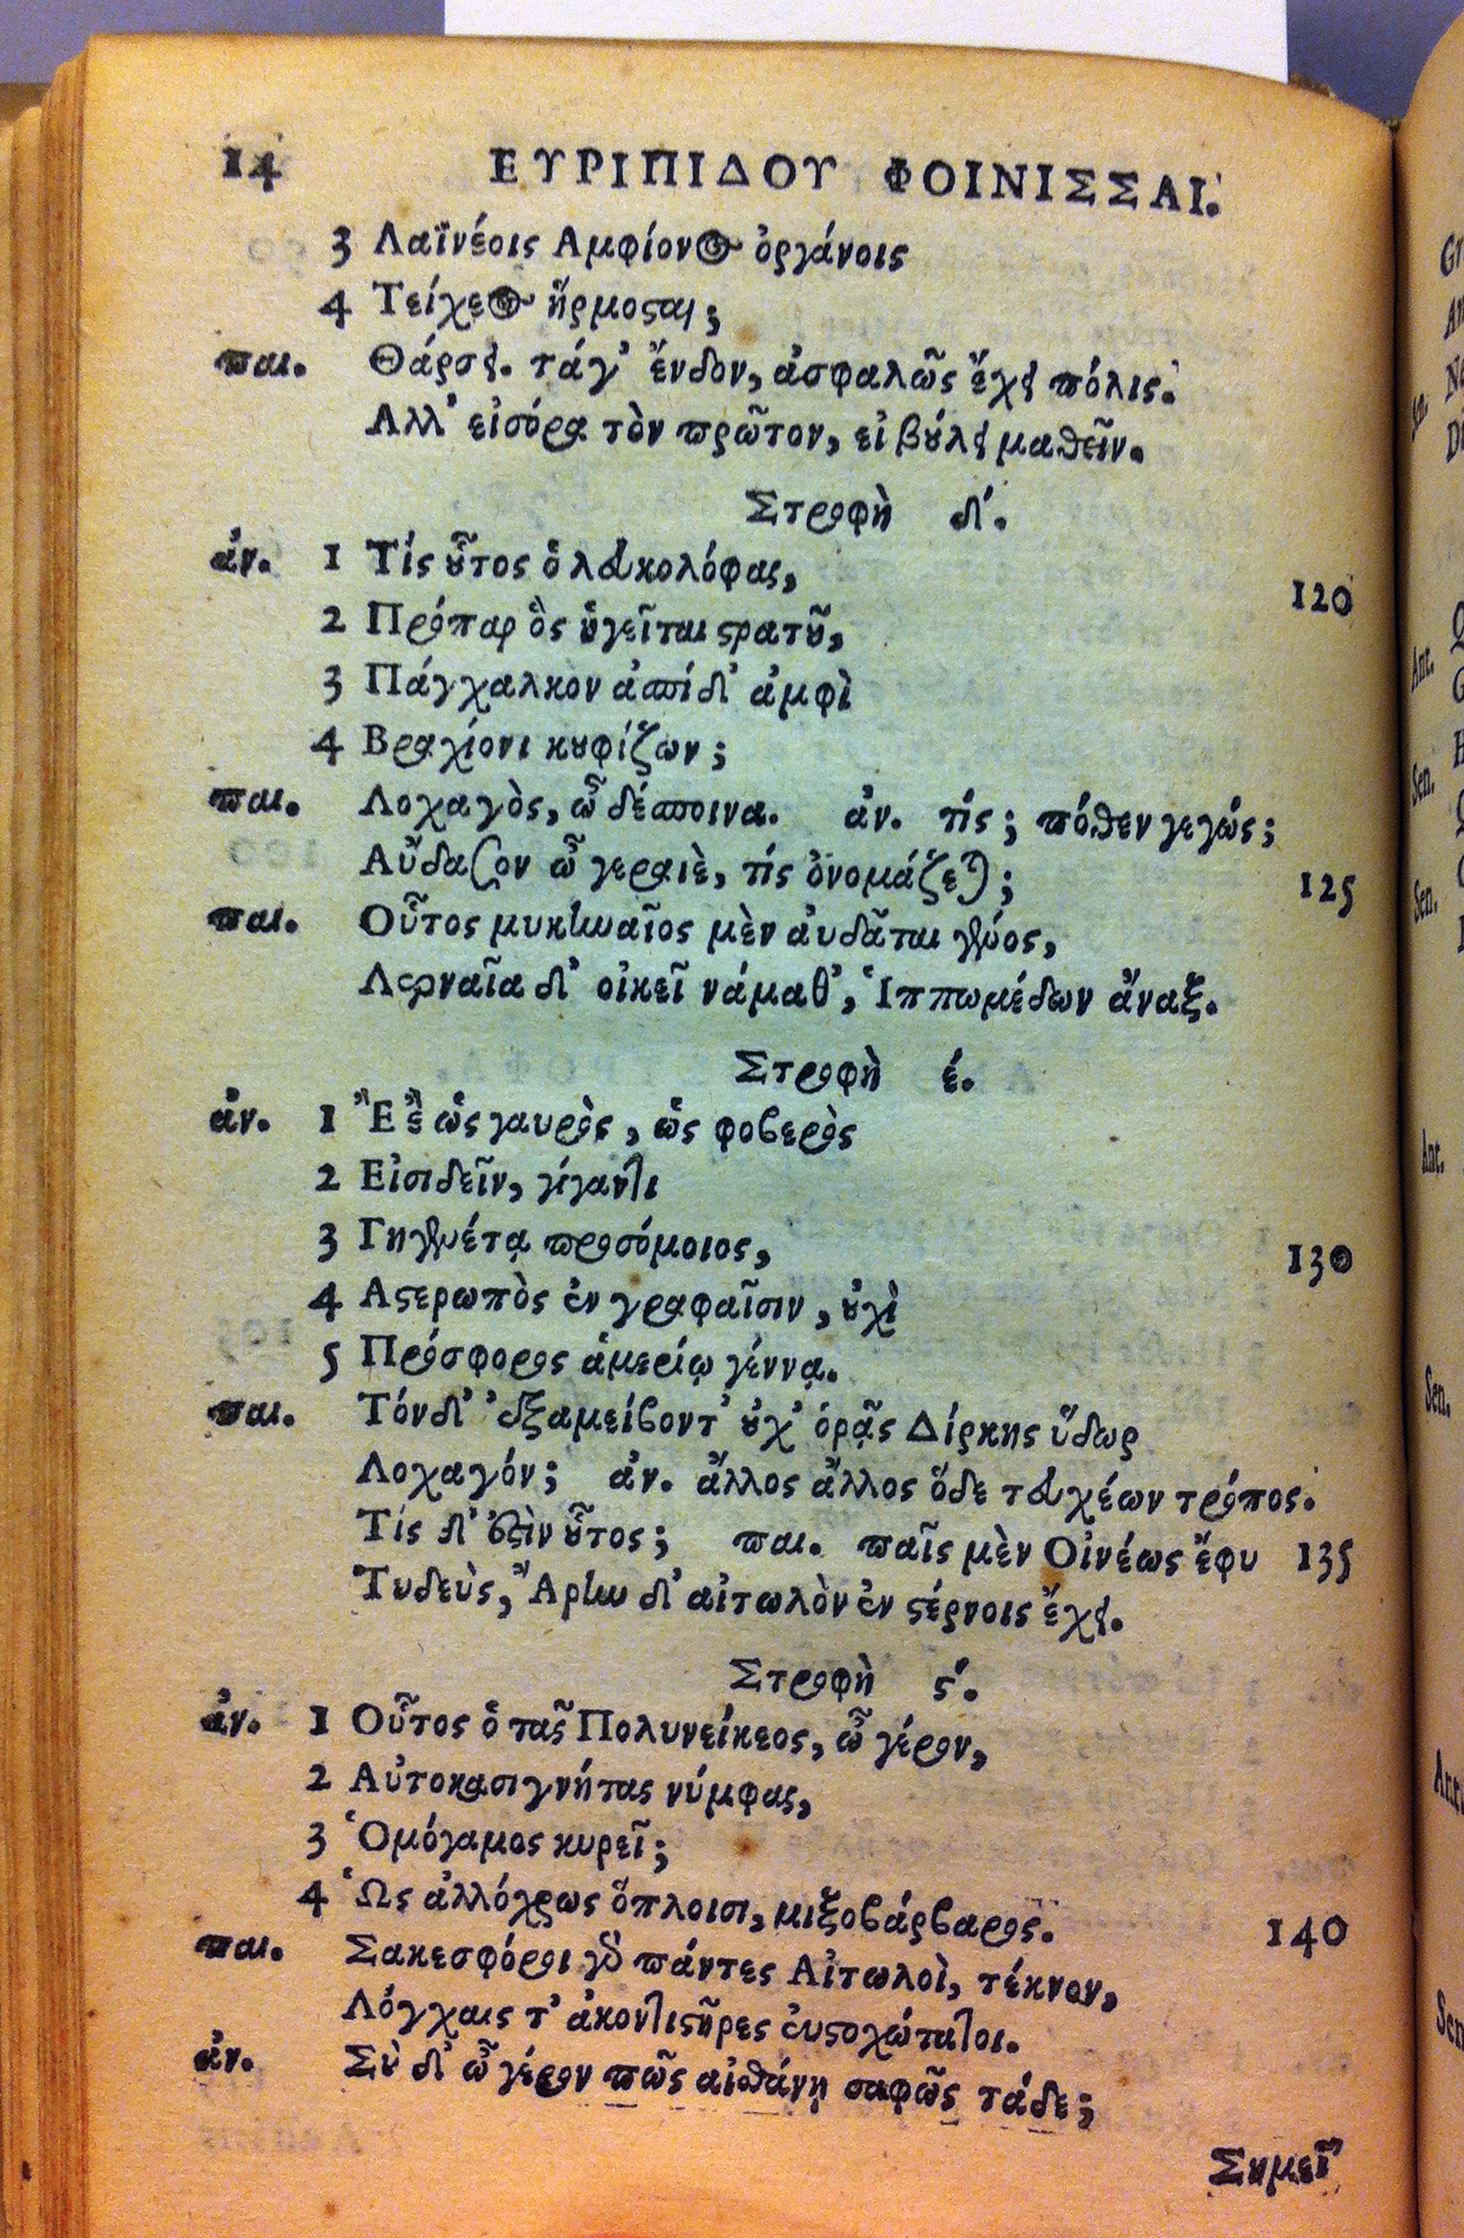 14 ΕΥΡΙΠΙΔΟΥ ΦΟΙΝΙΣΣΑΙ.
3 Λαϊνέοις Αμφίονος ὀργάνοις
4 Τείχεος ἥρμοσαι;
παι. Θάρσει. τάγ' ἔνδον, ἀσφαλῶς ἔχει πόλις.
Αλλ' εἰσόρα τὸν πρῶτον, εἰ βούλει μαθεῖν.
Στροφὴ δ΄.
ἀν. 1 Τίς οὗτος ὁ λευκολόφας,
2 Πρόπαρ ὃς ἁγεῖται στρατοῦ, 120
3 Πάγχαλκον ἀσπίδ' ἀμφὶ
4 Βραχίονι κουφίζων;
παι. Λοχαγὸς, ὦ δέσποινα. ἀν. τίς; πόθεν γεγώς;
Αὔδασον ὦ γεραιὲ, τίς ὀνομάζεται; 125
παι. Οὗτος μυκηναῖος μὲν ἀυδᾶται γένος,
Λερναῖα δ' οἰκεῖ νάμαθ', Ἱππωμέδων ἄναξ.
Στροφὴ έ.
ἀν. 1 Ἒ ἒ ὡς γαυρὸς, ὡς φοβερὸς
2 Εἰσιδεῖν, γίγαντι
3 Γηγενέτᾳ προσόμοιος, 130
4 Αστερωπὸς ἐν γραφαῖσιν, οὐχὶ
5 Πρόσφορος ἁμερίῳ γέννᾳ.
παι. Τόνδ' ἐξαμείβοντ' οὐχ' ὁρᾷς Δίρκης ὕδωρ
Λοχαγόν; ἀν. ἄλλος ἄλλος ὅδε τευχέων τρόπος.
Τίς δ' ἐστὶν οὗτος; παι. παῖς μὲν Οἰνέως ἔφυ 135
Τυδεὺς, Ἄρην δ' αἰτωλὸν ἐν στέρνοις ἔχει.
Στροφὴ ϛ΄.
ἀν. 1 Οὗτος ὁ τᾶς Πολυνείκεος, ὦ γέρον,
2 Αὐτοκασιγνήτας νύμφας,
3 Ὁμόγαμος κυρεῖ;
4 Ὡς ἀλλόχρως ὅπλοισι, μιξοβάρβαρος. 140
παι. Σακεσφόροι γὰρ πάντες Αἰτωλοὶ, τέκνον,
Λόγχαις τ' ἀκοντιστῆρες ἐυστοχώτατοι.
ἀν. Σὺ δ' ὦ γέρον πῶς αἰσθάνῃ σαφῶς τάδε;
Σημεῖ